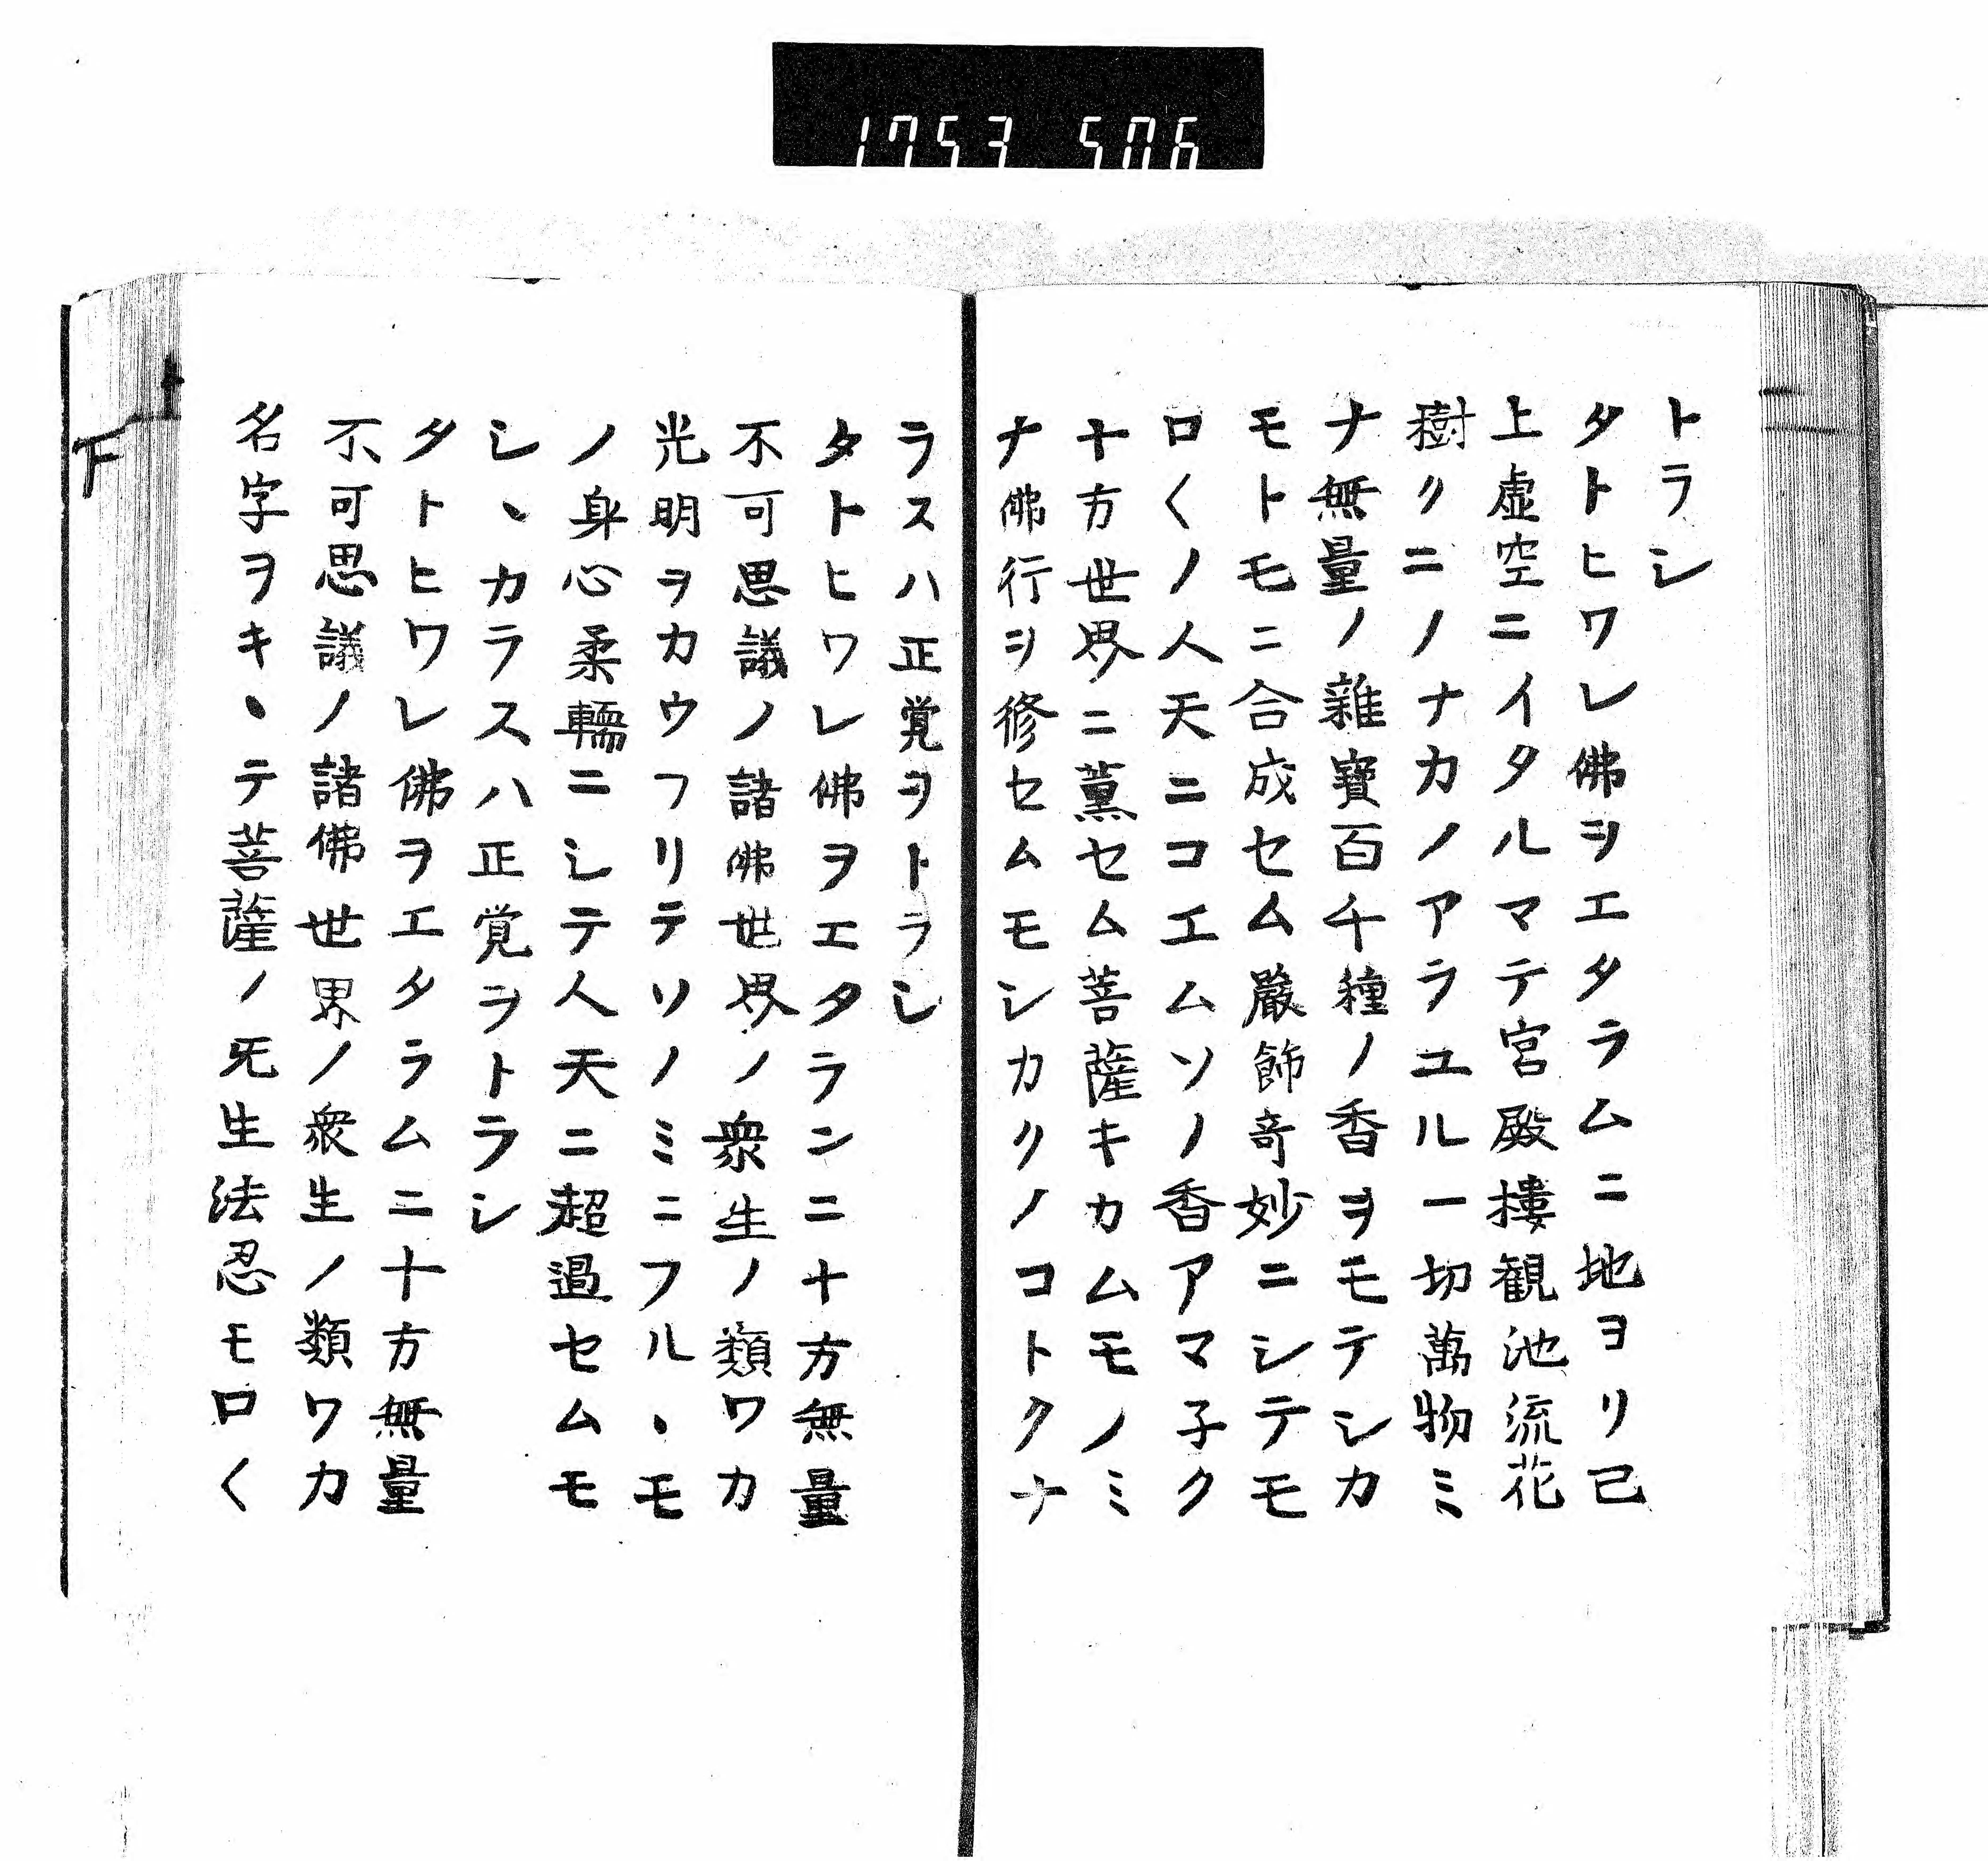 1753 506
トラシ
タトヒワレ佛ヲエタラムニ地ヨリ已
上虚空ニイタルマテ宮殿摟観池流花
樹クニノナカノアラユル一切萬物ミ
ナ無量ノ雜寶百千種ノ香ヲモテシカ
モトモニ合成セム嚴飾奇妙ニシテモ
ロ〱ノ人天ニコエムソノ香アマ子ク
十方世界ニ薫セム菩薩キカムモノミ
ナ佛行ヲ修セムモシカクノコトクナ
ラスハ正覚ヲトラシ
タトヒワレ佛ヲエタランニ十方無量
不可思議ノ諸佛世界ノ衆生ノ類ワカ
光明ヲカウフリテソノミニフルヽモ
ノ身心柔輭ニシテ人天ニ超過セムモ
シヽカラスハ正覚ヲトラシ
タトヒワレ佛ヲエタラムニ十方無量
不可思議ノ諸佛世界ノ衆生ノ類ワカ
名字ヲキヽテ菩薩ノ旡生法忍モロ〱
下